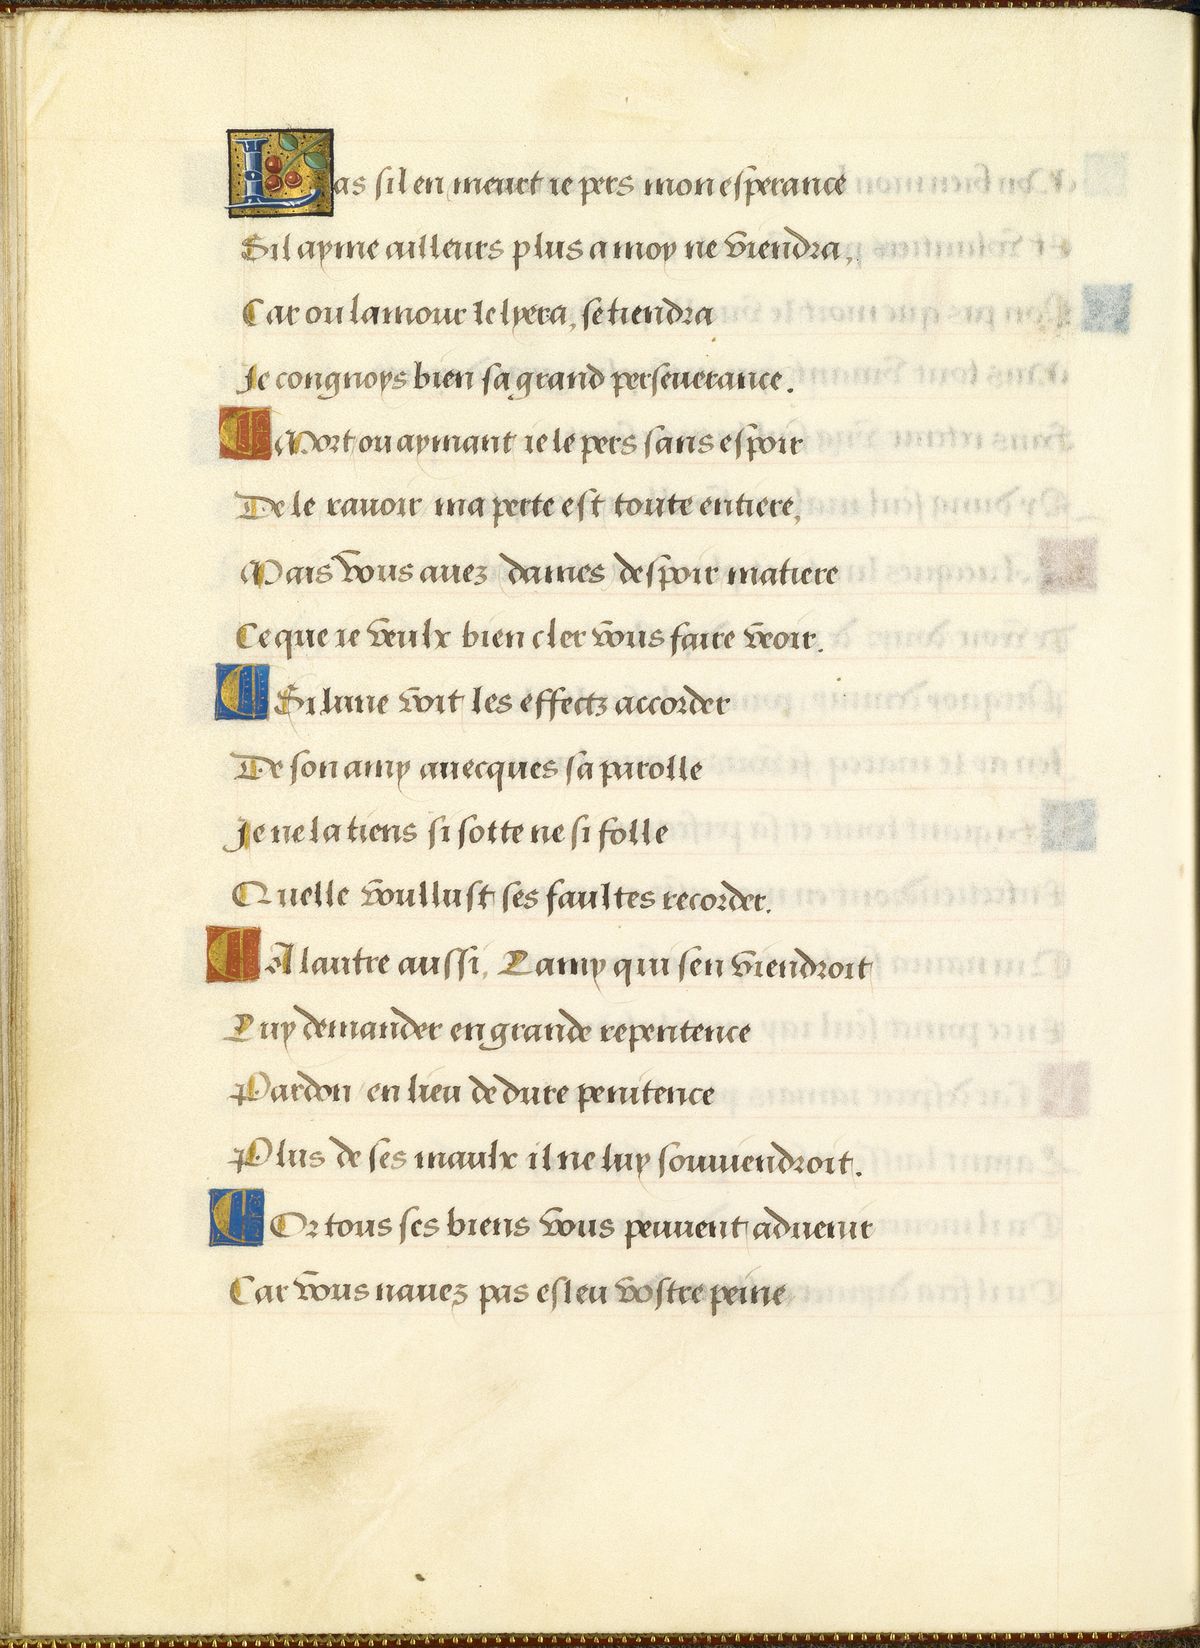 Las sil en meurt ie pers mon esperance
Sil ayme ailleurs plus a moy ne viendra,
Car ou lamour le lyera, se tiendra
Je congnoys bien sa grand perseuerance.
Mort ou aymant ie le pers sans espoir
De le rauoir ma perte est toute entiere,
Mais vous auez dames despoir matiere
Ce que ie veulx bien cler vous faire veoir.
Si lune voit les effectz accorder
De son amy auecques sa parolle
Je ne la tiens si sotte ne si folle
Quelle voullust ses faultes recorder.
A lautre aussi, Lamy qui sen viendroit
Luy demander en grande repentence
Pardon / en lieu de dure penitence
Plus de ses maulx il ne luy souuiendroit.
Or tous ses biens vous peuuent aduenir
Car vous nauez pas esleu vostre peine